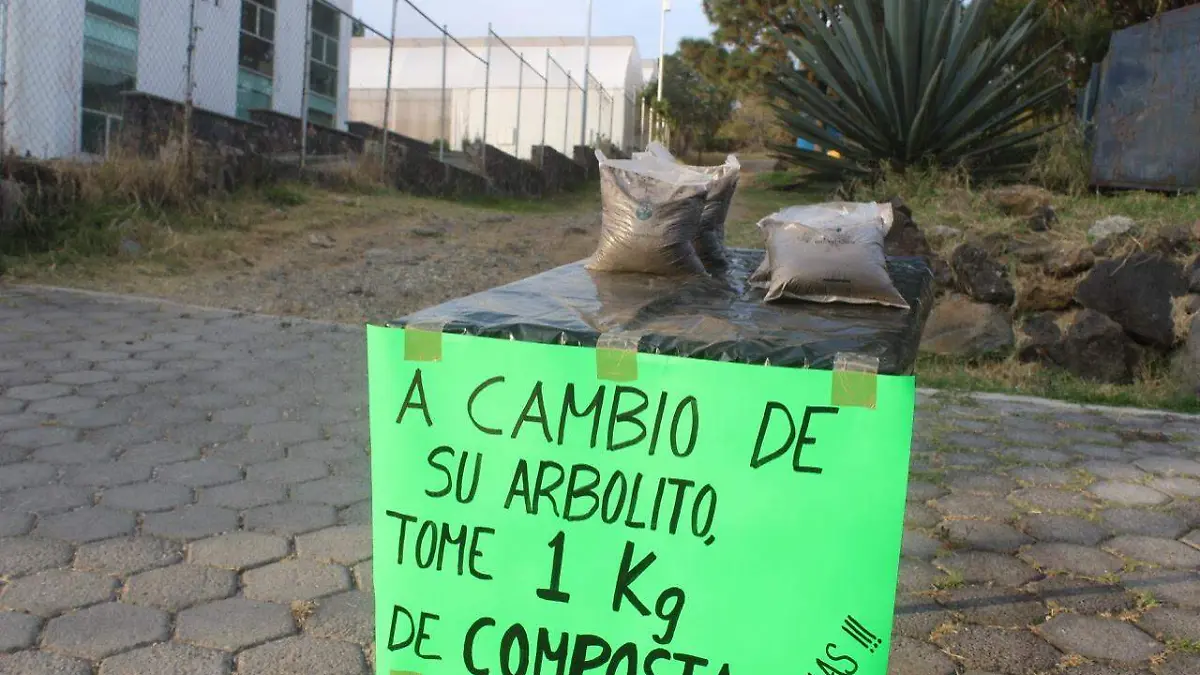 A CAMBIO DE
SU ARBOLITO,
TOME 1 Kg
DE COMPOSTA